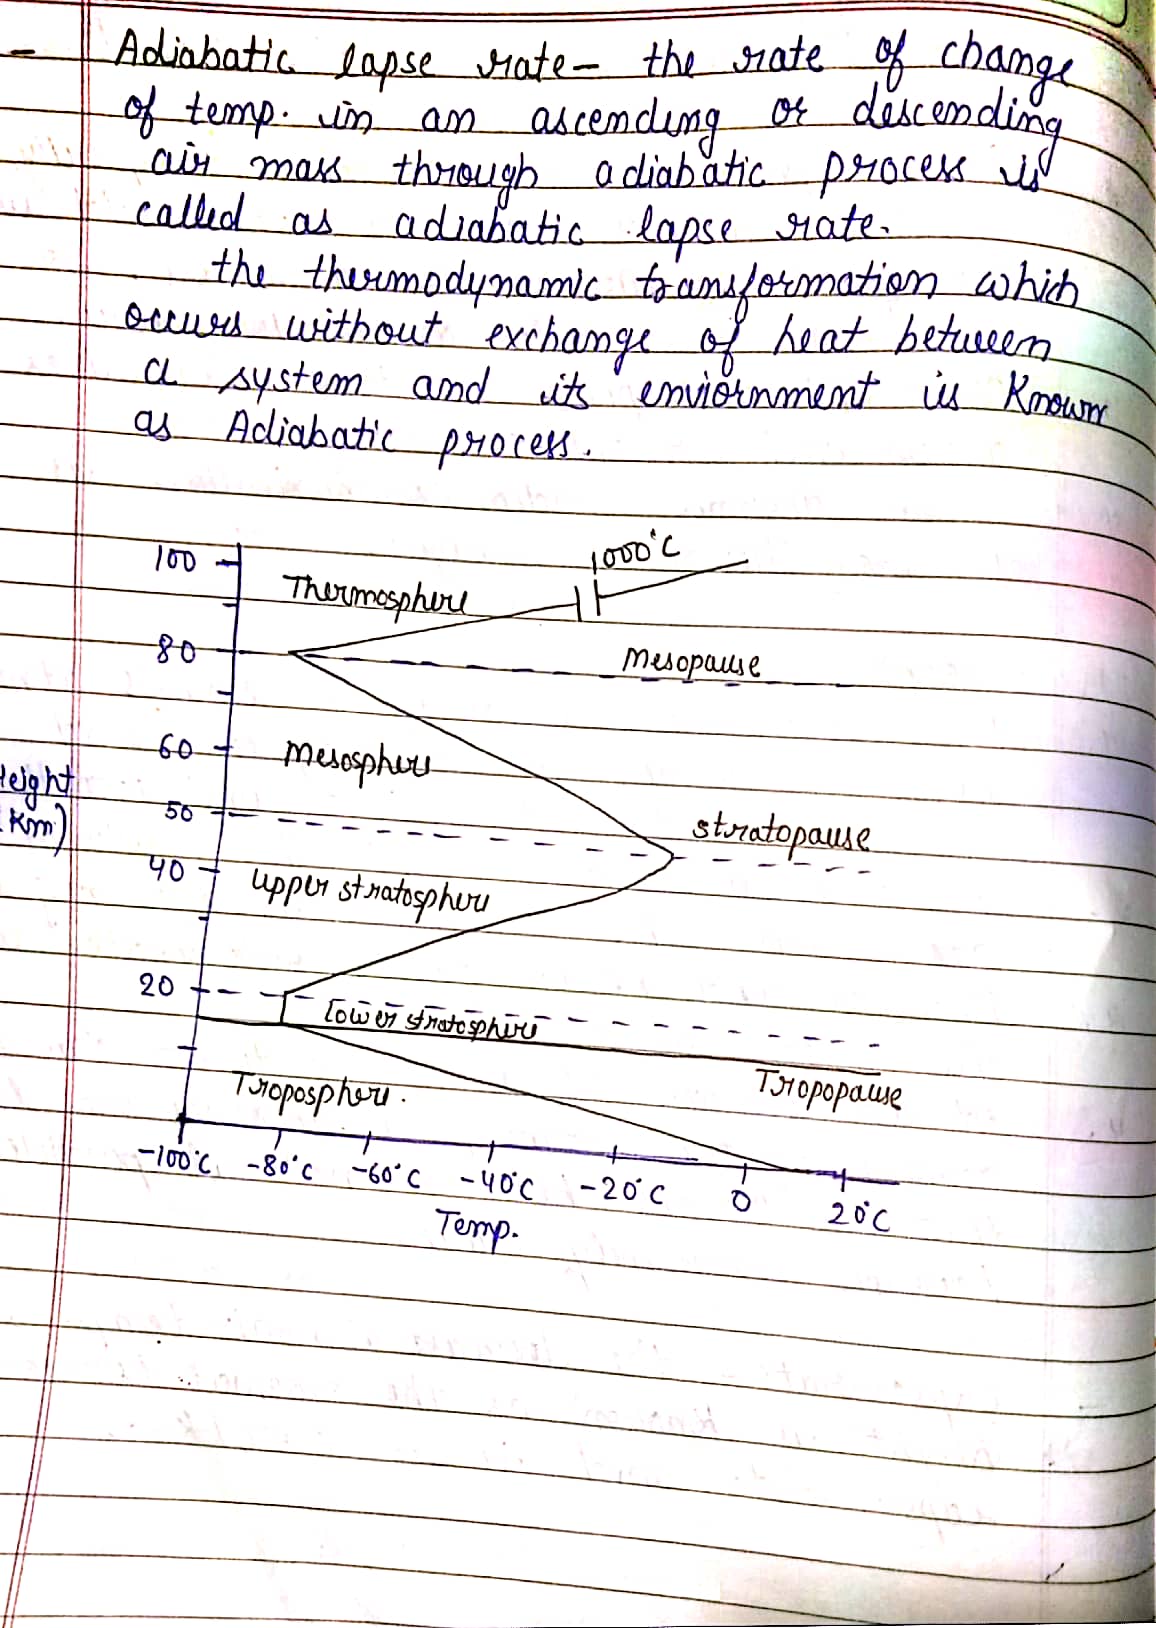 - Adiabatic lapse rate - the rate of change
of temp. in an ascending or descending
air mass through adiabatic process is
called as adiabatic lapse rate.
the thermodynamic transformation which
occurs without exchange of heat between
a system and its enviornment is Known
as Adiabatic process.
1000°C
100
Thermosphere
80
Mesopause
60
Mesosphere
eight
Km)
50
stratopause
40
Upper stratosphere
20
Lower stratosphere
Tropopause
Troposphere.
-100°C -80°C -60°C -40°C -20°C 0 20°C
Temp.